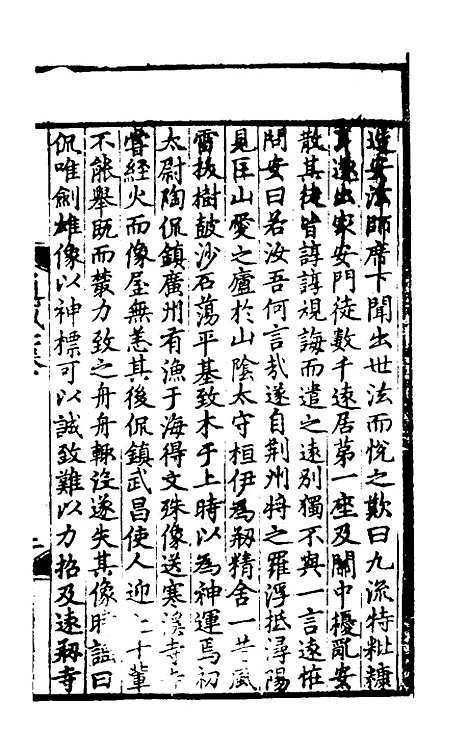 道安法師席下聞出世法而悅之歎曰九流特粃糠
耳遂出家安門徒數千遠居第一座及關中擾亂安
散其徒皆諄諄規誨而遣之遠別獨不與一言遠怪
問安曰若汝吾何言哉遂自荊州將之羅浮抵潯陽
見匡山愛之廬於山陰太守桓伊為剏精舍一昔風
雷拔樹鼓沙石蕩平基致木于上時以為神運焉初
太尉陶侃鎮廣州有漁于海得文殊像送寒溪寺
嘗經火而像屋無恙其後侃鎮武昌使人迎之十輩
不能舉既而叢力致之舟舟輒沒遂失其像時謡曰
侃唯劍雄像以神標可以誠致難以力招及遠剏寺